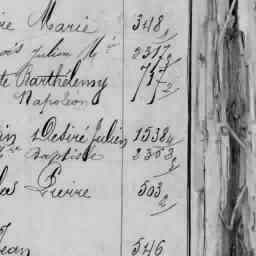 re Marie 348
ois Julien M
2317
te Barthélemy 717
Napoléon
in Désiré Julien 1538
Baptiste 2353
las Pierre 503
Jean 546